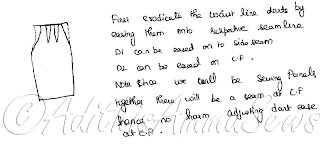 First eradicate the waist line darts by
easing them onto respective seamline
D1 can be eased on to side seam
D2 can be eased on C.F.
Note Since we will be sewing Panels
together there will be a seam at C.F
hence no harm adjusting dart ease
at C.F.
©AdithisAmmaSews